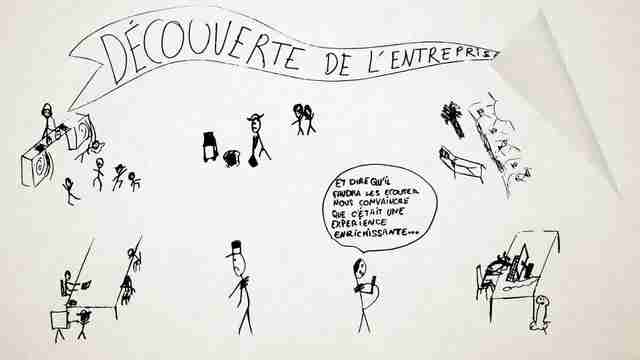 DÉCOUVERTE DE L'ENTREPRISE
ET DIRE QU'IL
FAUDRA LES ÉCOUTER
NOUS CONVAINCRE
QUE C'ÉTAIT UNE
EXPÉRIENCE
ENRICHISSANTE...